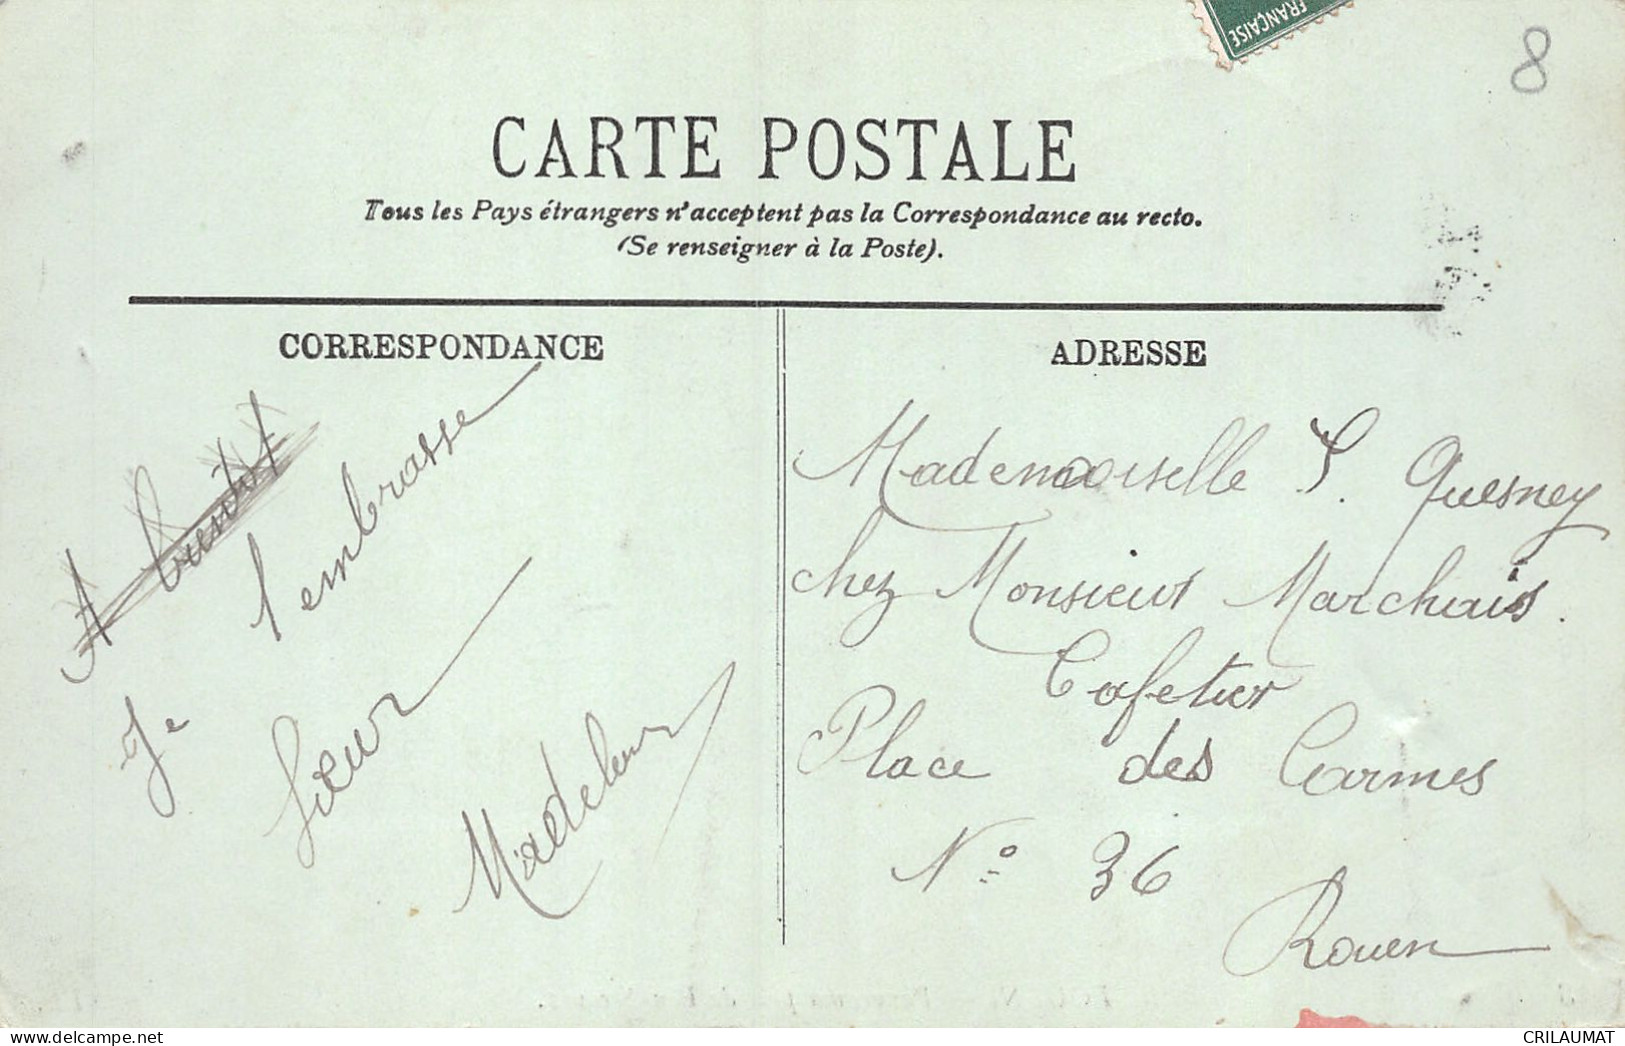 FRANÇAISE
8
CARTE POSTALE
Tous les Pays étrangers n'acceptent pas la Correspondance au recto.
(Se renseigner à la Poste).
CORRESPONDANCE
A bientôt
Je t'embrasse
Sœur
Madeleine
ADRESSE
Mademoiselle S. Quesney
chez Monsieur Marchais.
Cafetier
Place des Carmes
N° 36
Rouen
CRILAUMAT